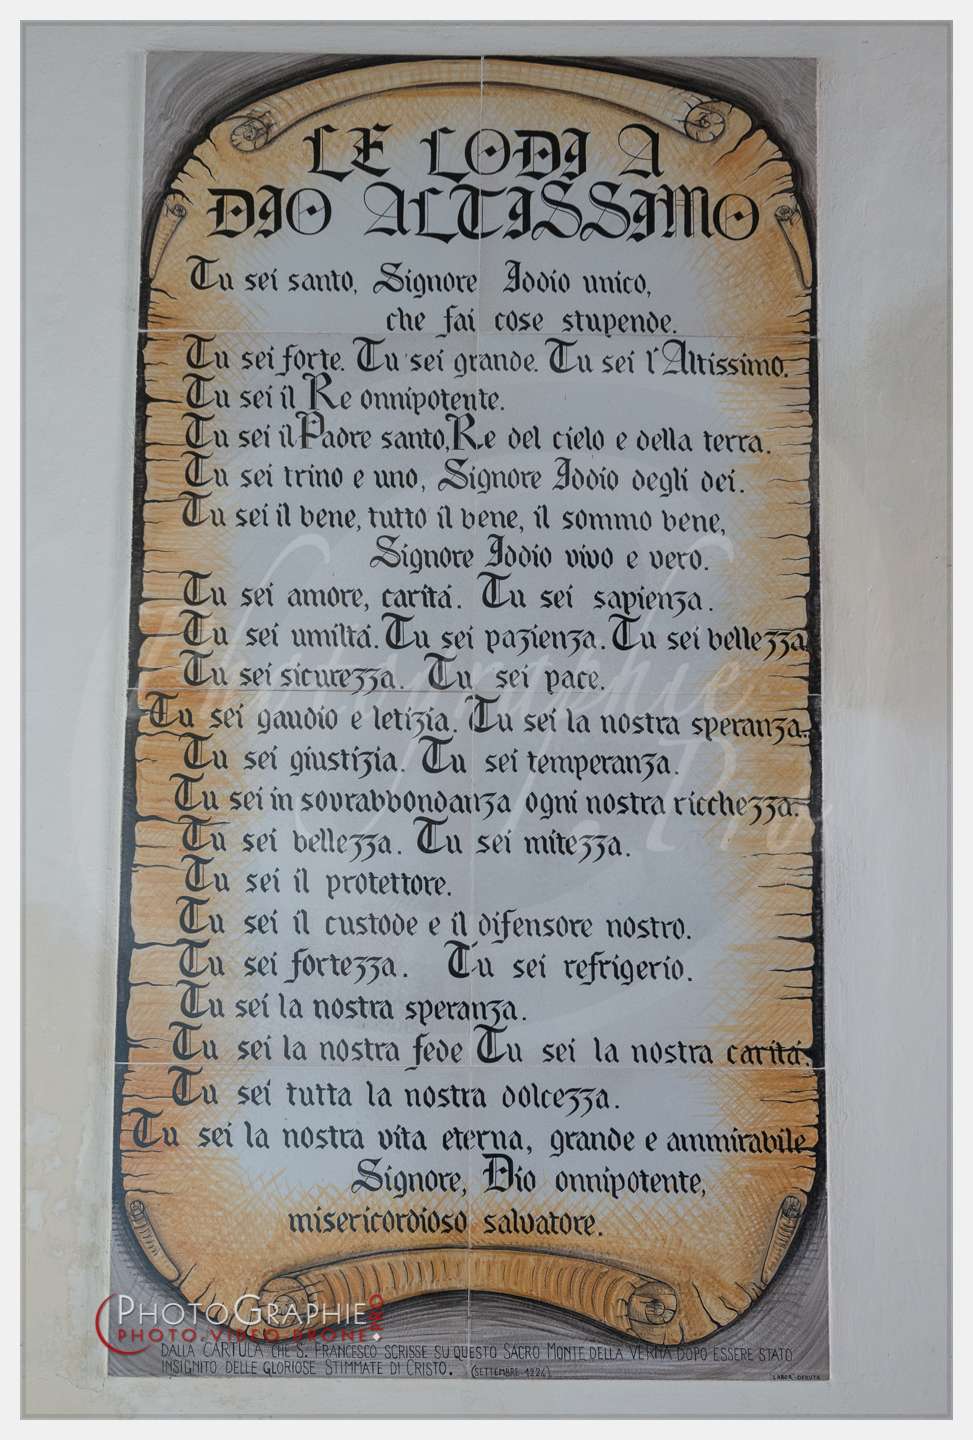 LE LODI A
DIO ALTISSIMO
Tu sei santo, Signore Iddio unico,
che fai cose stupende.
Tu sei forte. Tu sei grande. Tu sei l'Altissimo.
Tu sei il Re onnipotente.
Tu sei il Padre santo, Re del cielo e della terra.
Tu sei trino e uno, Signore Iddio degli dei.
Tu sei il bene, tutto il bene, il sommo bene,
Signore Iddio vivo e vero.
Tu sei amore, caritá. Tu sei sapienza.
Tu sei umiltá. Tu sei pazienza. Tu sei bellezza
Tu sei sicurezza. Tu sei pace.
Tu sei gaudio e letizia. Tu sei la nostra speranza.
Tu sei giustizia. Tu sei temperanza.
Tu sei in sovrabbondanza ogni nostra ricchezza.
Tu sei bellezza. Tu sei mitezza.
Tu sei il protettore.
Tu sei il custode e il difensore nostro.
Tu sei fortezza. Tu sei refrigerio.
Tu sei la nostra speranza.
Tu sei la nostra fede Tu sei la nostra caritá.
Tu sei tutta la nostra dolcezza.
Tu sei la nostra vita eterna, grande e ammirabile
Signore, Dio onnipotente,
misericordioso salvatore.
PHOTOGRAPHIE
PHOTO.VIDEO.DRONE.PRO
DALLA CARTULA CHE S. FRANCESCO SCRISSE SU QUESTO SACRO MONTE DELLA VERNA DOPO ESSERE STATO
INSIGNITO DELLE GLORIOSE STIMMATE DI CRISTO. (SETTEMBRE 1224)
LABOR DERUTA